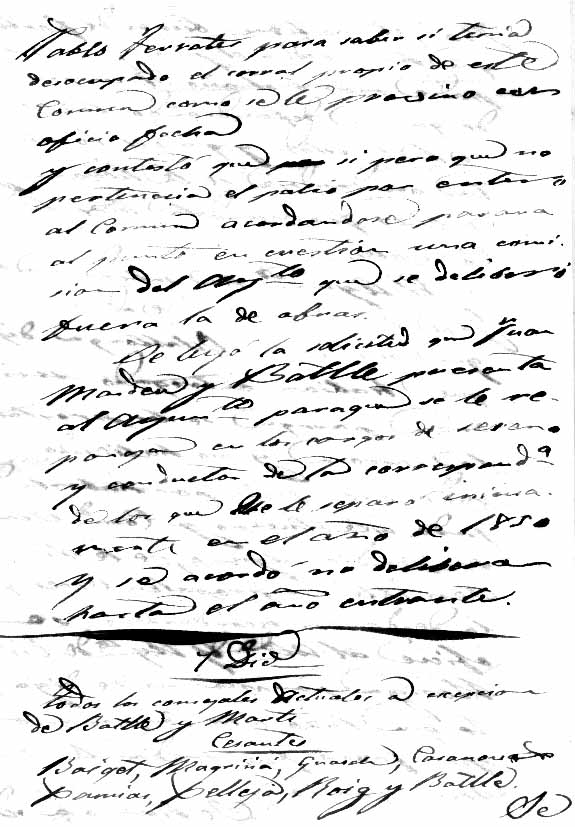 Pablo Ferrates para saber si tenia
desocupado el corral propio de este
Comun como se le previno con
oficio fecha
y contestó que si pero que no
pertenecia el patio por entero
al Comun acordandose pasara
al punto en cuestion una comi-
sion del Ayto que se deliberó
fuera la de obras.
Se leyó la solicitud que Juan
y Batlle presenta
al Ayunto paraque se le re-
pongan en los cargos de sereno
y conductor de la correspondª
de los que se le separó
en el año de 1850
y se acordó no deliberar
hasta el año entrante.
7 Dic
Todos los concejales actuales a excepcion
de Batlle y Marti
Cesantes
Baiget, Magriñá, Guasch, Casanovas
Damias, Pellejá, Roig y Batlle.
Se